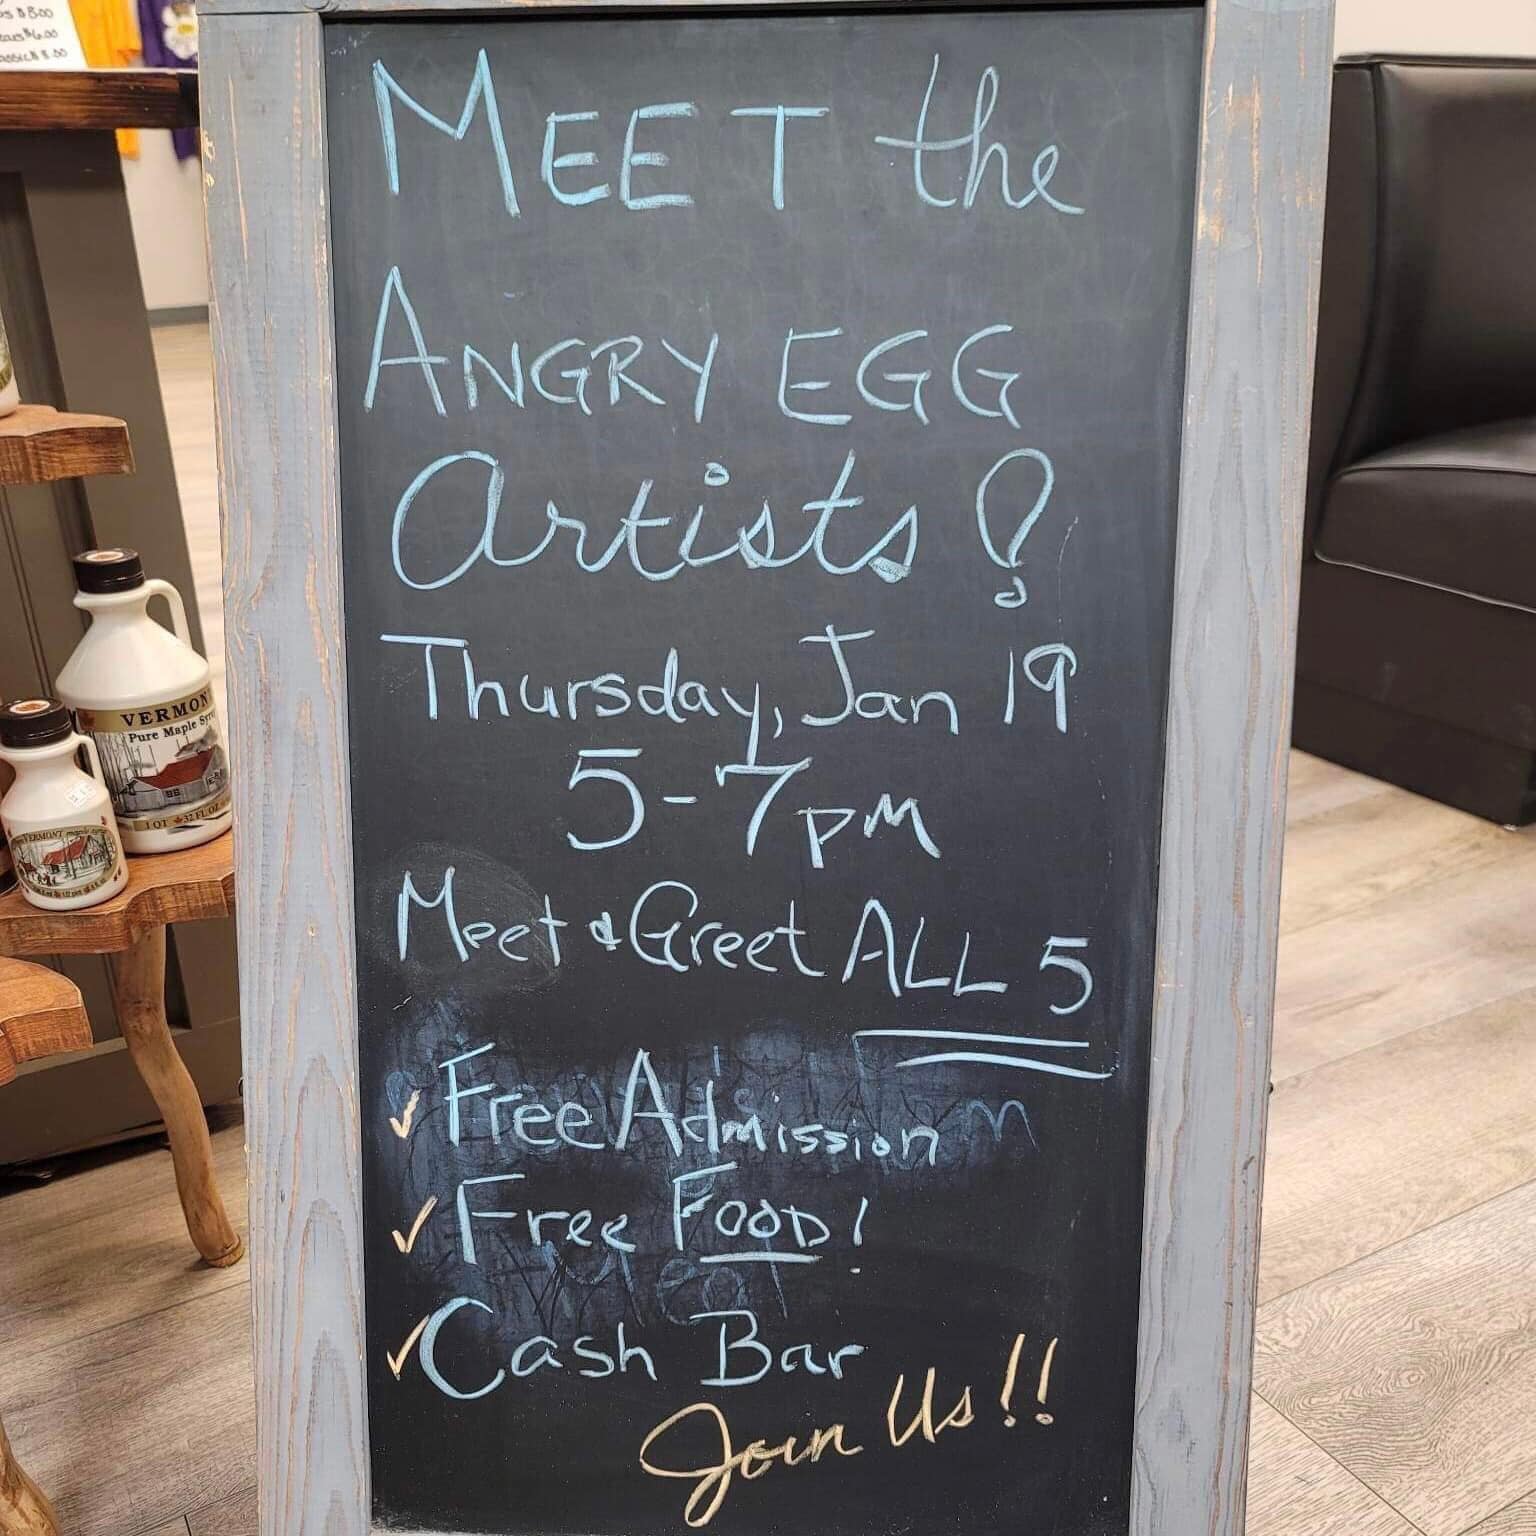 MEET the
ANGRY EGG
Artists!
Thursday, Jan 19
5-7pm
Meet & Greet ALL 5
✓ Free Admission
✓ Free FOOD!
✓ Cash Bar
Join Us!!
$8.00
$6.00
$8.00
VERMON
Pure Maple Syru
1 QT 32 FL OZ
VERMONT maple